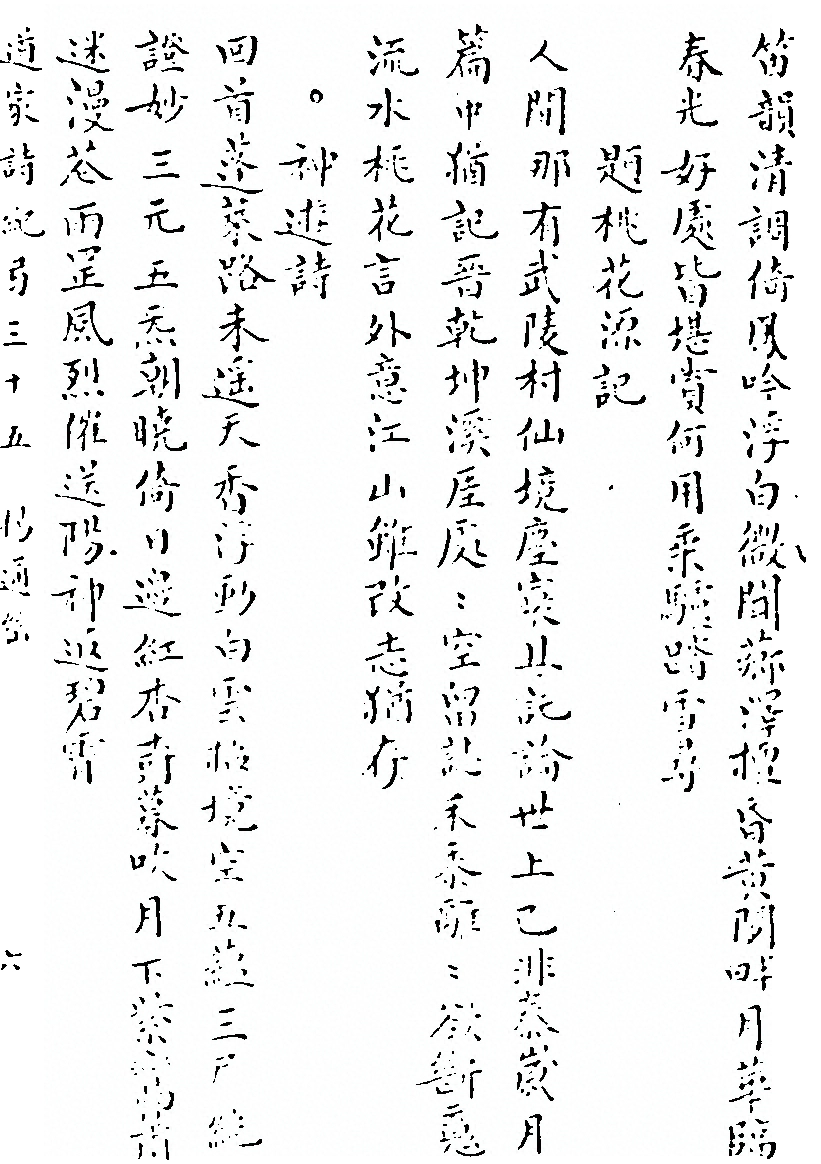 笛韻清調倚鳳吟浮白微聞薌澤檀昏黃閒畔月華臨
春光好處皆堪賞何用乘驢踏雪尋
題桃花源記
人間那有武陵村仙境塵寰且託論世上已非秦歲月
篇中猶記晉乾坤溪厓處〻空留誌禾黍離〻欲斷魂
流水桃花言外意江山雖改志猶存
。神遊詩
回首蓬萊路未遙天香浮動白雲描境空五蘊三尸絕
證妙三元五炁朝曉倚日邊紅杏暮吹月下紫
迷漫花雨罡風烈催送陽神返碧霄
道家詩紀弓三十五 楊通 六